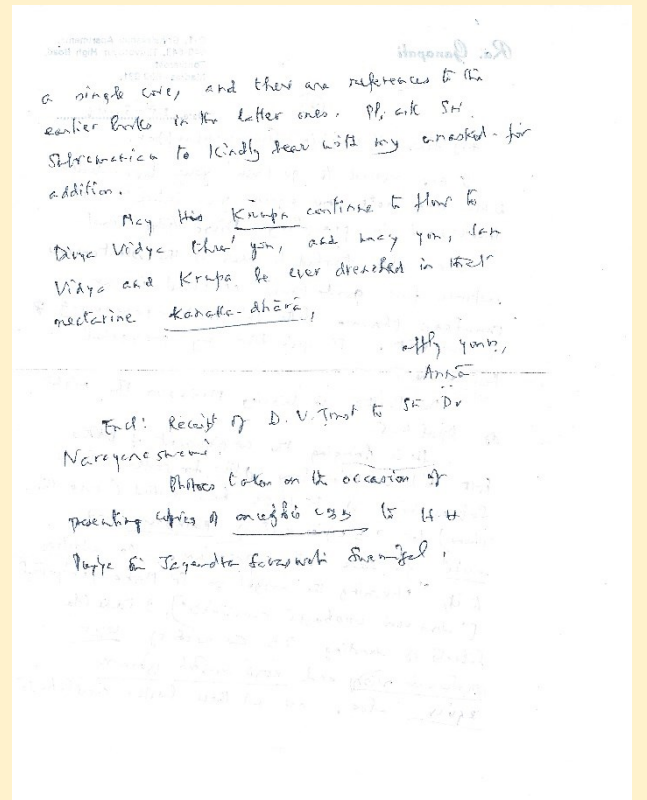 a single core, and there are references to the
earlier books in the latter ones. Pl. ask Sri
Subramanian to kindly bear with my unasked-for
addition.
May His Krupa continue to flow to
Divya Vidya thro' you, and may you, Sau
Vidya and Krupa be ever drenched in their
nectarine kanaka-dhārā,
affly yours,
Aṇṇā
Encl: Receipt of D. V. Trust to Sri Dr
Narayanaswami.
Photos taken on the occasion of
presenting copies of to H H
Pujya Sri Jayendra Saraswati Swamigal.